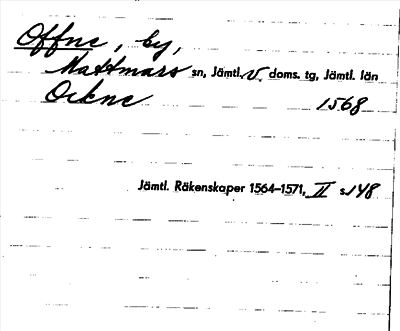 Offne, by,
Mattmars sn, Jämtl. V. doms. tg, Jämtl. län
Ockne 1568
Jämtl. Räkenskaper 1564–1571, II s. 148